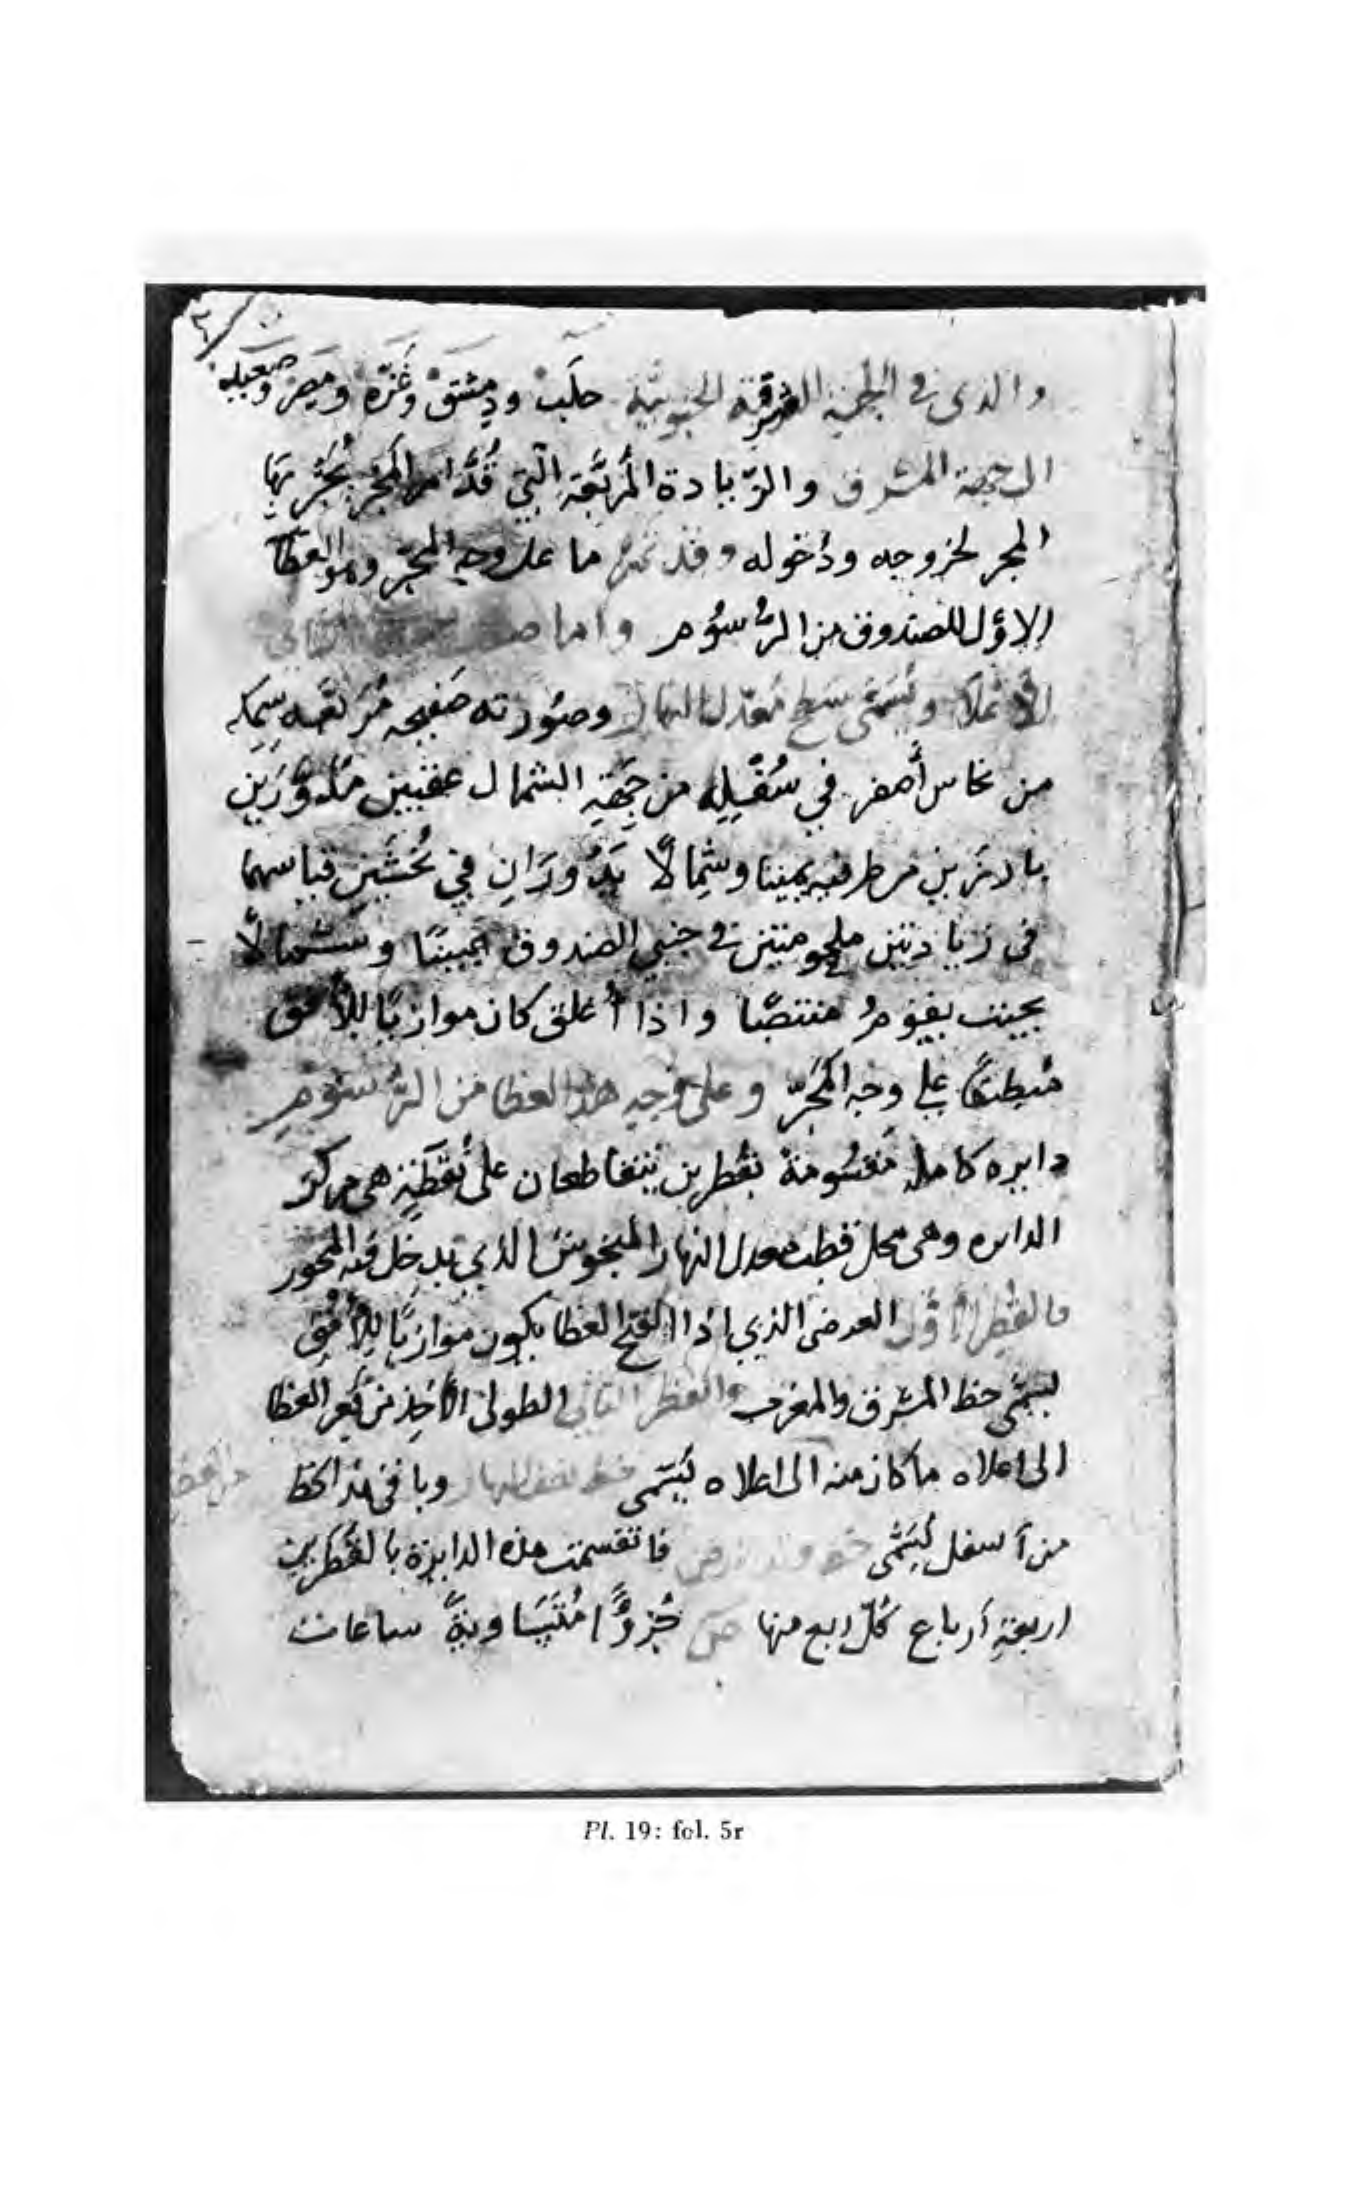 والذي في الجهة الشرقية الجنوبية حلب ودمشق وغزة ومصر وصعيد
الى جهة المشرق والزيادة المربعة التي قدام المجر يجر بها
المجر لخروجه ودخوله وقد تم ما على وجه المجر وهو الغطا
الاول للصندوق من الرسوم واما الثاني
ويسمى سطح معدل النهار وصورته صفيحه مربعه سمكه
من نحاس أصفر في سفله من جهة الشمال عقبين مدورين
بارزين من طرفيه يمينا وشمالاً يدوران في فياسهما
في زيادتين ملحومتين في جنبي الصندوق يمينًا وشمالاً
بحيث يقوم منتصبًا واذا أغلق كان موازيًا للأفق
منطبقًا على وجه المجرّ وعلى وجه هذا الغطا من الرسوم
دايره كامله مقسومة بقطرين يتقاطعان على نقطة هي مركز
الدايره وهي محل قطب معدل النهار المبخوش الذي يدخل فيه المحور
فالقطر الأول العرضي الذي اذا انفتح الغطا يكون موازيًا للأفق
يسمى خط المشرق والمغرب والقطر الثاني الطولي الآخذ من قعر الغطا
الى اعلاه ما كان منه الى اعلاه يسمى خط نصف النهار وباقي هذا الخط
من أسفل يسمى خط وتد الارض فانقسمت هذه الدايرة بالقطرين
اربعة أرباع كل ربع منها جزوًا متساوية ساعات
Pl. 19: fol. 5r